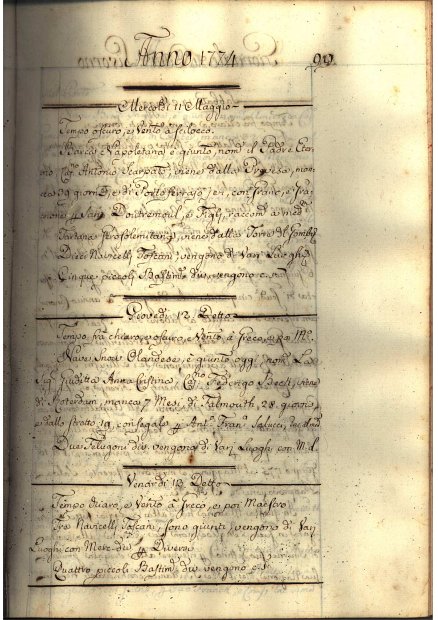 Anno 1774
99
Mercoldi 11 Maggio
Tempo oscuro, e Vento à Scilocco
Barca Napoletana è giunto, nom. il Padre Eter
no Cap. Antonio Scarpati, viene dalla Provesa, man
ca 39 giorni, e di Porto ferrajo, ieri, con franc, e fra
e Figlj, raccom. a med.
Tartana Gerosolemitana, viene dalla Torre di
Dieci Navicelli Toscani, vengono di Varj Luoghj
Cinque piccoli Bastim. div. vengono c. s.
Giovedi 12 Detto
Tempo frà chiaro, e oscuro, e Vento à Greco, e poi M.
Nave Snow Olandese, è giunto oggi, nom. La
Sig. Giuditta Anna Cristina, Cap. Federigo viene
di Roterdam, manca 7 Mesi, di Falmouth, 28 giorni,
e dallo stretto 19, con segale p. Ant. Fran. Salucci,
Due Felugoni div. vengono di Varj Luoghi con M. d.
Venardi 13 Detto
Tempo chiaro, e Vento à Greco, e poi Maestro
Tre Navicelli Toscani, sono giunti, vengono di Varj
Luoghi con Merc. div. p. Diversi
Quattro piccoli Bastim. div. vengono c. s.